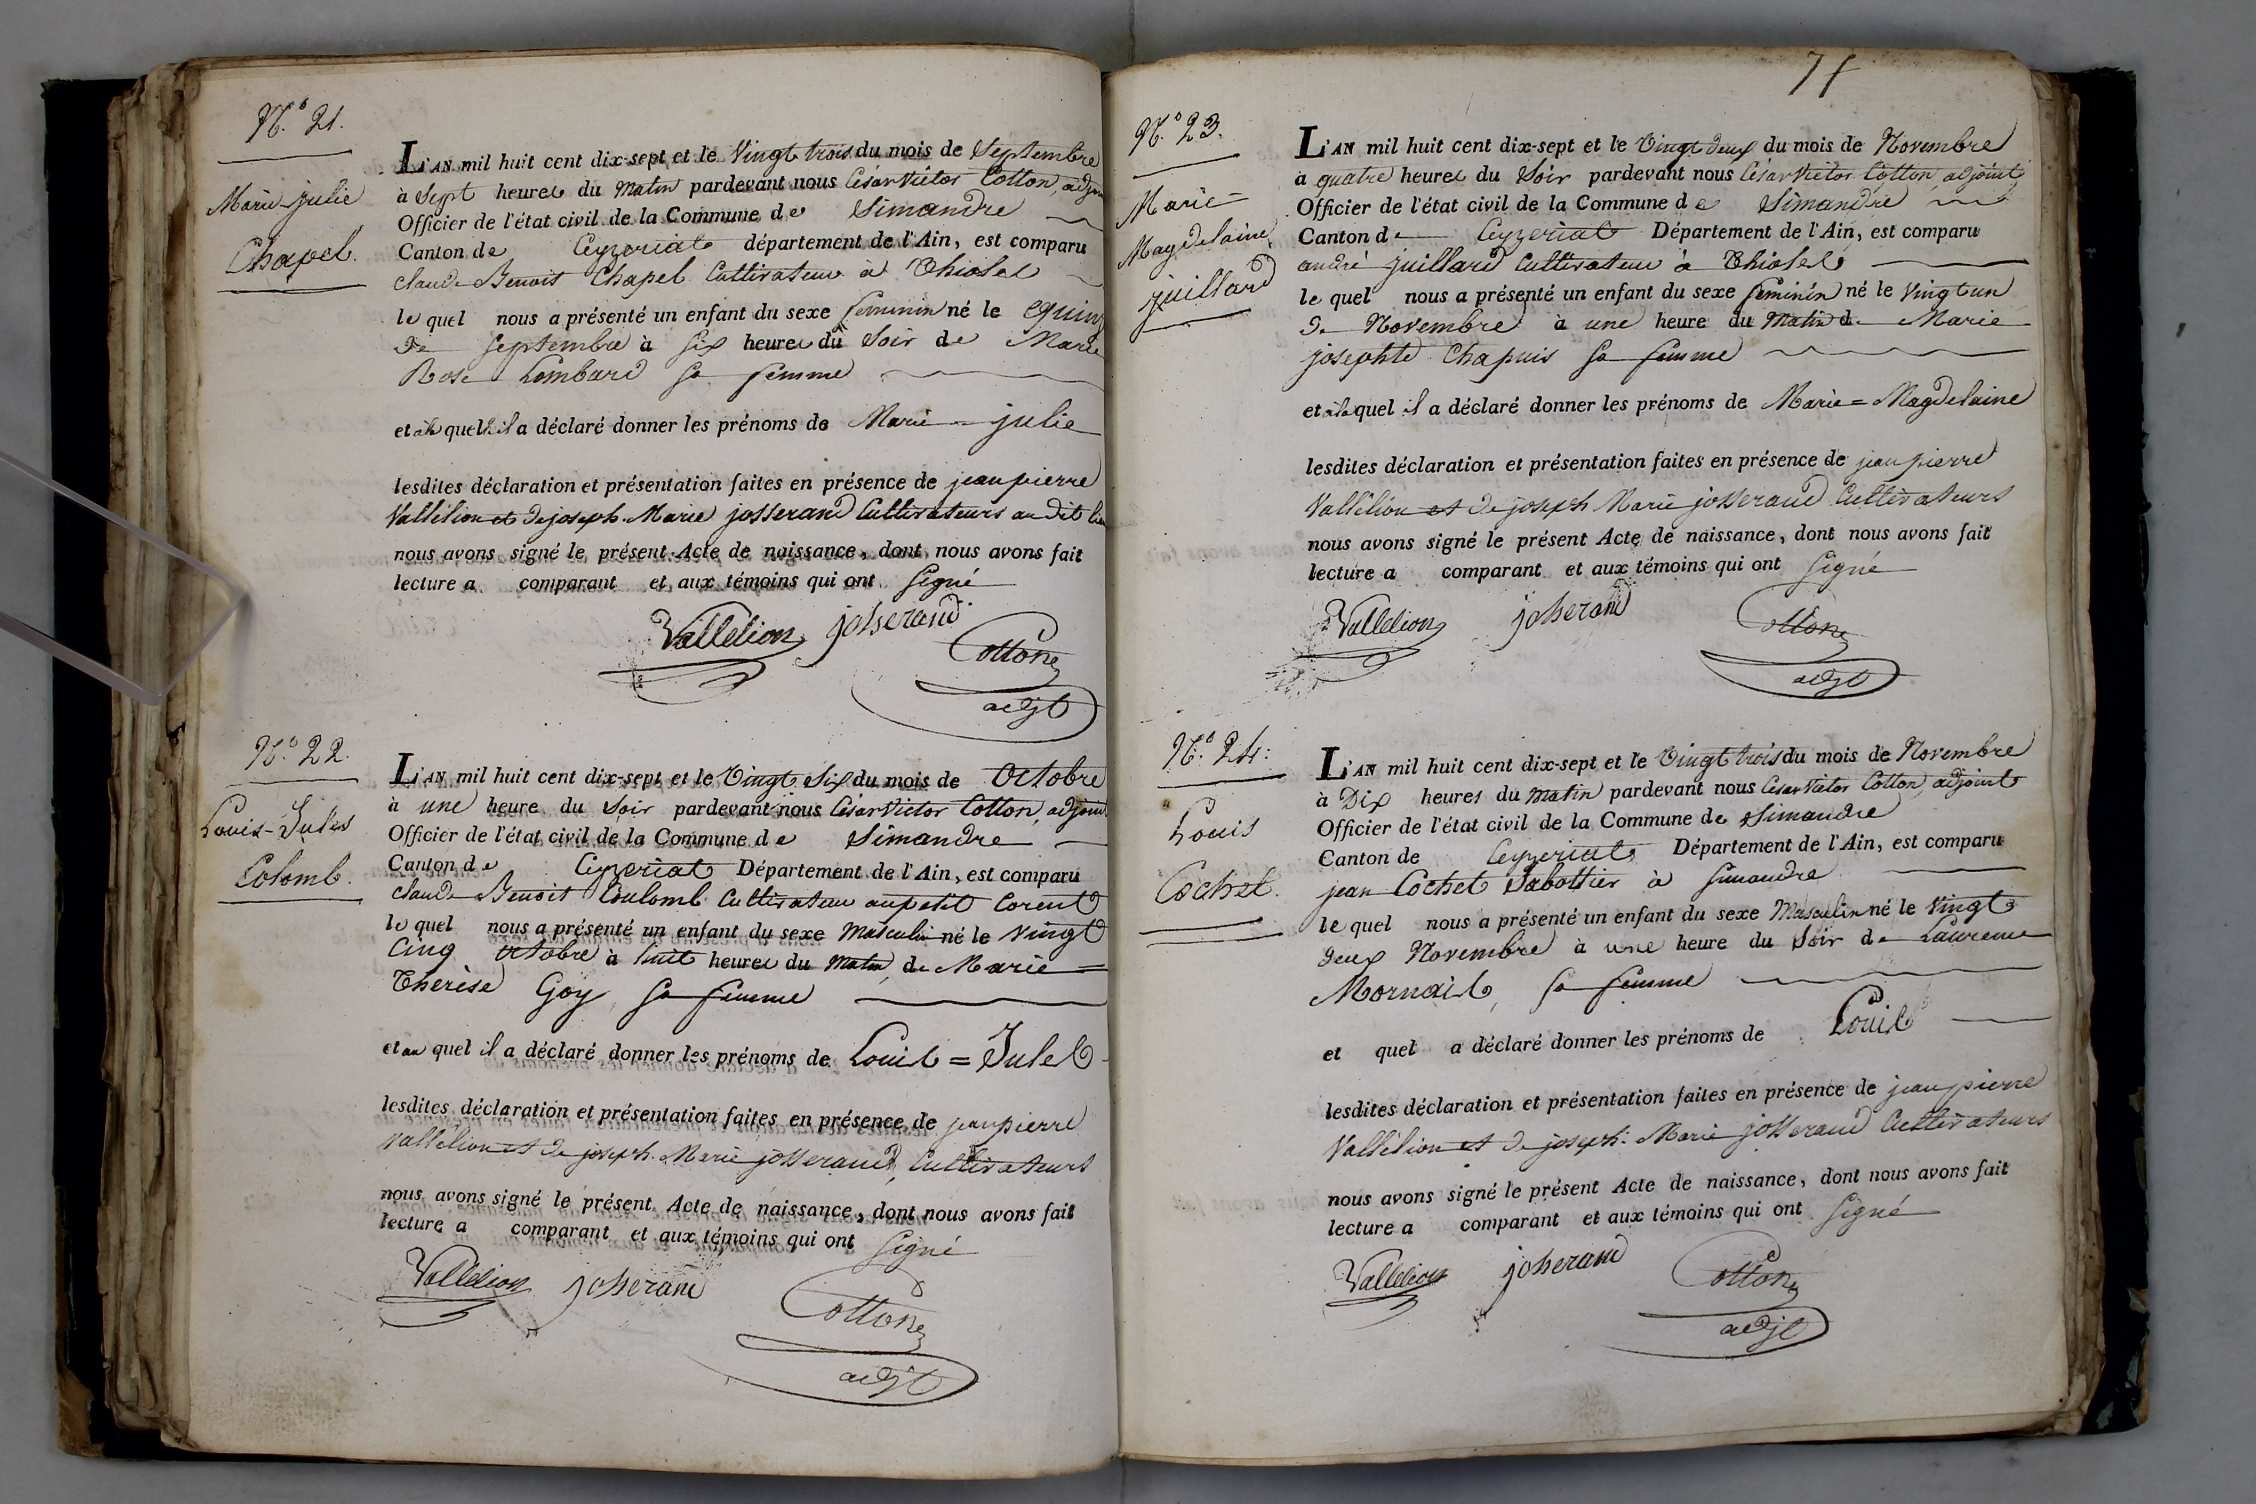 N.º 21.
Marie-Julie
Chapel.
L'AN mil huit cent dix-sept et le Vingt trois du mois de Septembre
à Sept heures du Matin pardevant nous César Victor Cotton, adjoint
Officier de l'état civil de la Commune de Simandre
Canton de Ceyzeriat département de l'Ain, est comparu
claude Benoit Chapel Cultivateur à Thioles
le quel nous a présenté un enfant du sexe feminin né le
De Septembre à Six heures du Soir de Marie
Rose Lombard Sa femme
et à la quelle il a déclaré donner les prénoms de Marie = julie
lesdites déclaration et présentation faites en présence de jean pierre
Vallélion et de joseph Marie josserand Cultivateurs au dit lieu
nous avons signé le présent Acte de naissance, dont nous avons fait
lecture a comparant et aux témoins qui ont Signé
Vallélion josserand
Cotton
adjt
N.º 22.
Louis-Jules
Colomb.
L'AN mil huit cent dix-sept et le Vingt Six du mois de Octobre
à une heure du Soir pardevant nous César Victor Cotton, adjoint
Officier de l'état civil de la Commune de Simandre
Canton de Ceyzeriat Département de l'Ain, est comparu
claude Benoit Coulomb Cultivateur au petit Corent
le quel nous a présenté un enfant du sexe Masculin né le Vingt
Cinq octobre à huit heures du Matin de Marie =
Thérèse Goy Sa femme
et au quel il a déclaré donner les prénoms de Louis = Jules
lesdites déclaration et présentation faites en présence de jean pierre
Vallélion et de joseph Marie josserand, Cultivateurs
nous avons signé le présent Acte de naissance, dont nous avons fait
lecture a comparant et aux témoins qui ont Signé
Vallélion josserand
Cotton
adjt
N.º 23.
Marie =
Magdelaine
juillard
L'AN mil huit cent dix-sept et le Vingt deux du mois de Novembre
à quatre heures du Soir pardevant nous César Victor Cotton, adjoint
Officier de l'état civil de la Commune de Simandre
Canton de Ceyzeriat Département de l'Ain, est comparu
andré juillard Cultivateur à Thioles
le quel nous a présenté un enfant du sexe feminin né le Vingt un
De Novembre à une heure du Matin de Marie
josephte Chapuis Sa femme
et à la quel il a déclaré donner les prénoms de Marie = Magdelaine
lesdites déclaration et présentation faites en présence de jean pierre
Vallélion et de joseph Marie josserand Cultivateurs
nous avons signé le présent Acte de naissance, dont nous avons fait
lecture a comparant et aux témoins qui ont Signé
Vallélion josserand
Cotton
adjt
N.º 24:
Louis
Cochet.
L'AN mil huit cent dix-sept et le Vingt trois du mois de Novembre
à Dix heures du Matin pardevant nous César Victor Cotton, adjoint
Officier de l'état civil de la Commune de Simandre
Canton de Ceyzeriat Département de l'Ain, est comparu
jean Cochet Sabottier à Simandre
le quel nous a présenté un enfant du sexe Masculin né le Vingt
deux Novembre à une heure du Soir de Laurence
Sa femme
et quel a déclaré donner les prénoms de Louis
lesdites déclaration et présentation faites en présence de jean pierre
Vallélion et de joseph Marie josserand Cultivateurs
nous avons signé le présent Acte de naissance, dont nous avons fait
lecture a comparant et aux témoins qui ont Signé
Vallélion josserand
Cotton
adjt